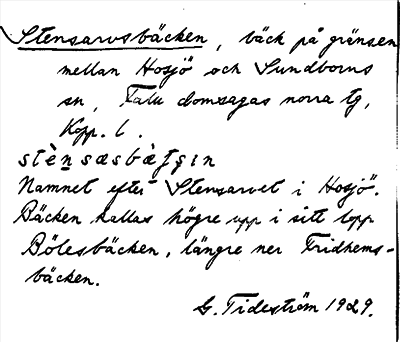 Stensarvsbäcken, bäck på gränsen
mellan Hosjö och Sundborns
sn, Falu domsagas norra tg,
Kopp. l.
stènsæsbæ̀tʃin
Namnet efter Stensarvet i Hosjö.
Bäcken kallas högre upp i sitt lopp
Bölesbäcken, längre ner Fridhems-
bäcken.
G. Tideström 1929.